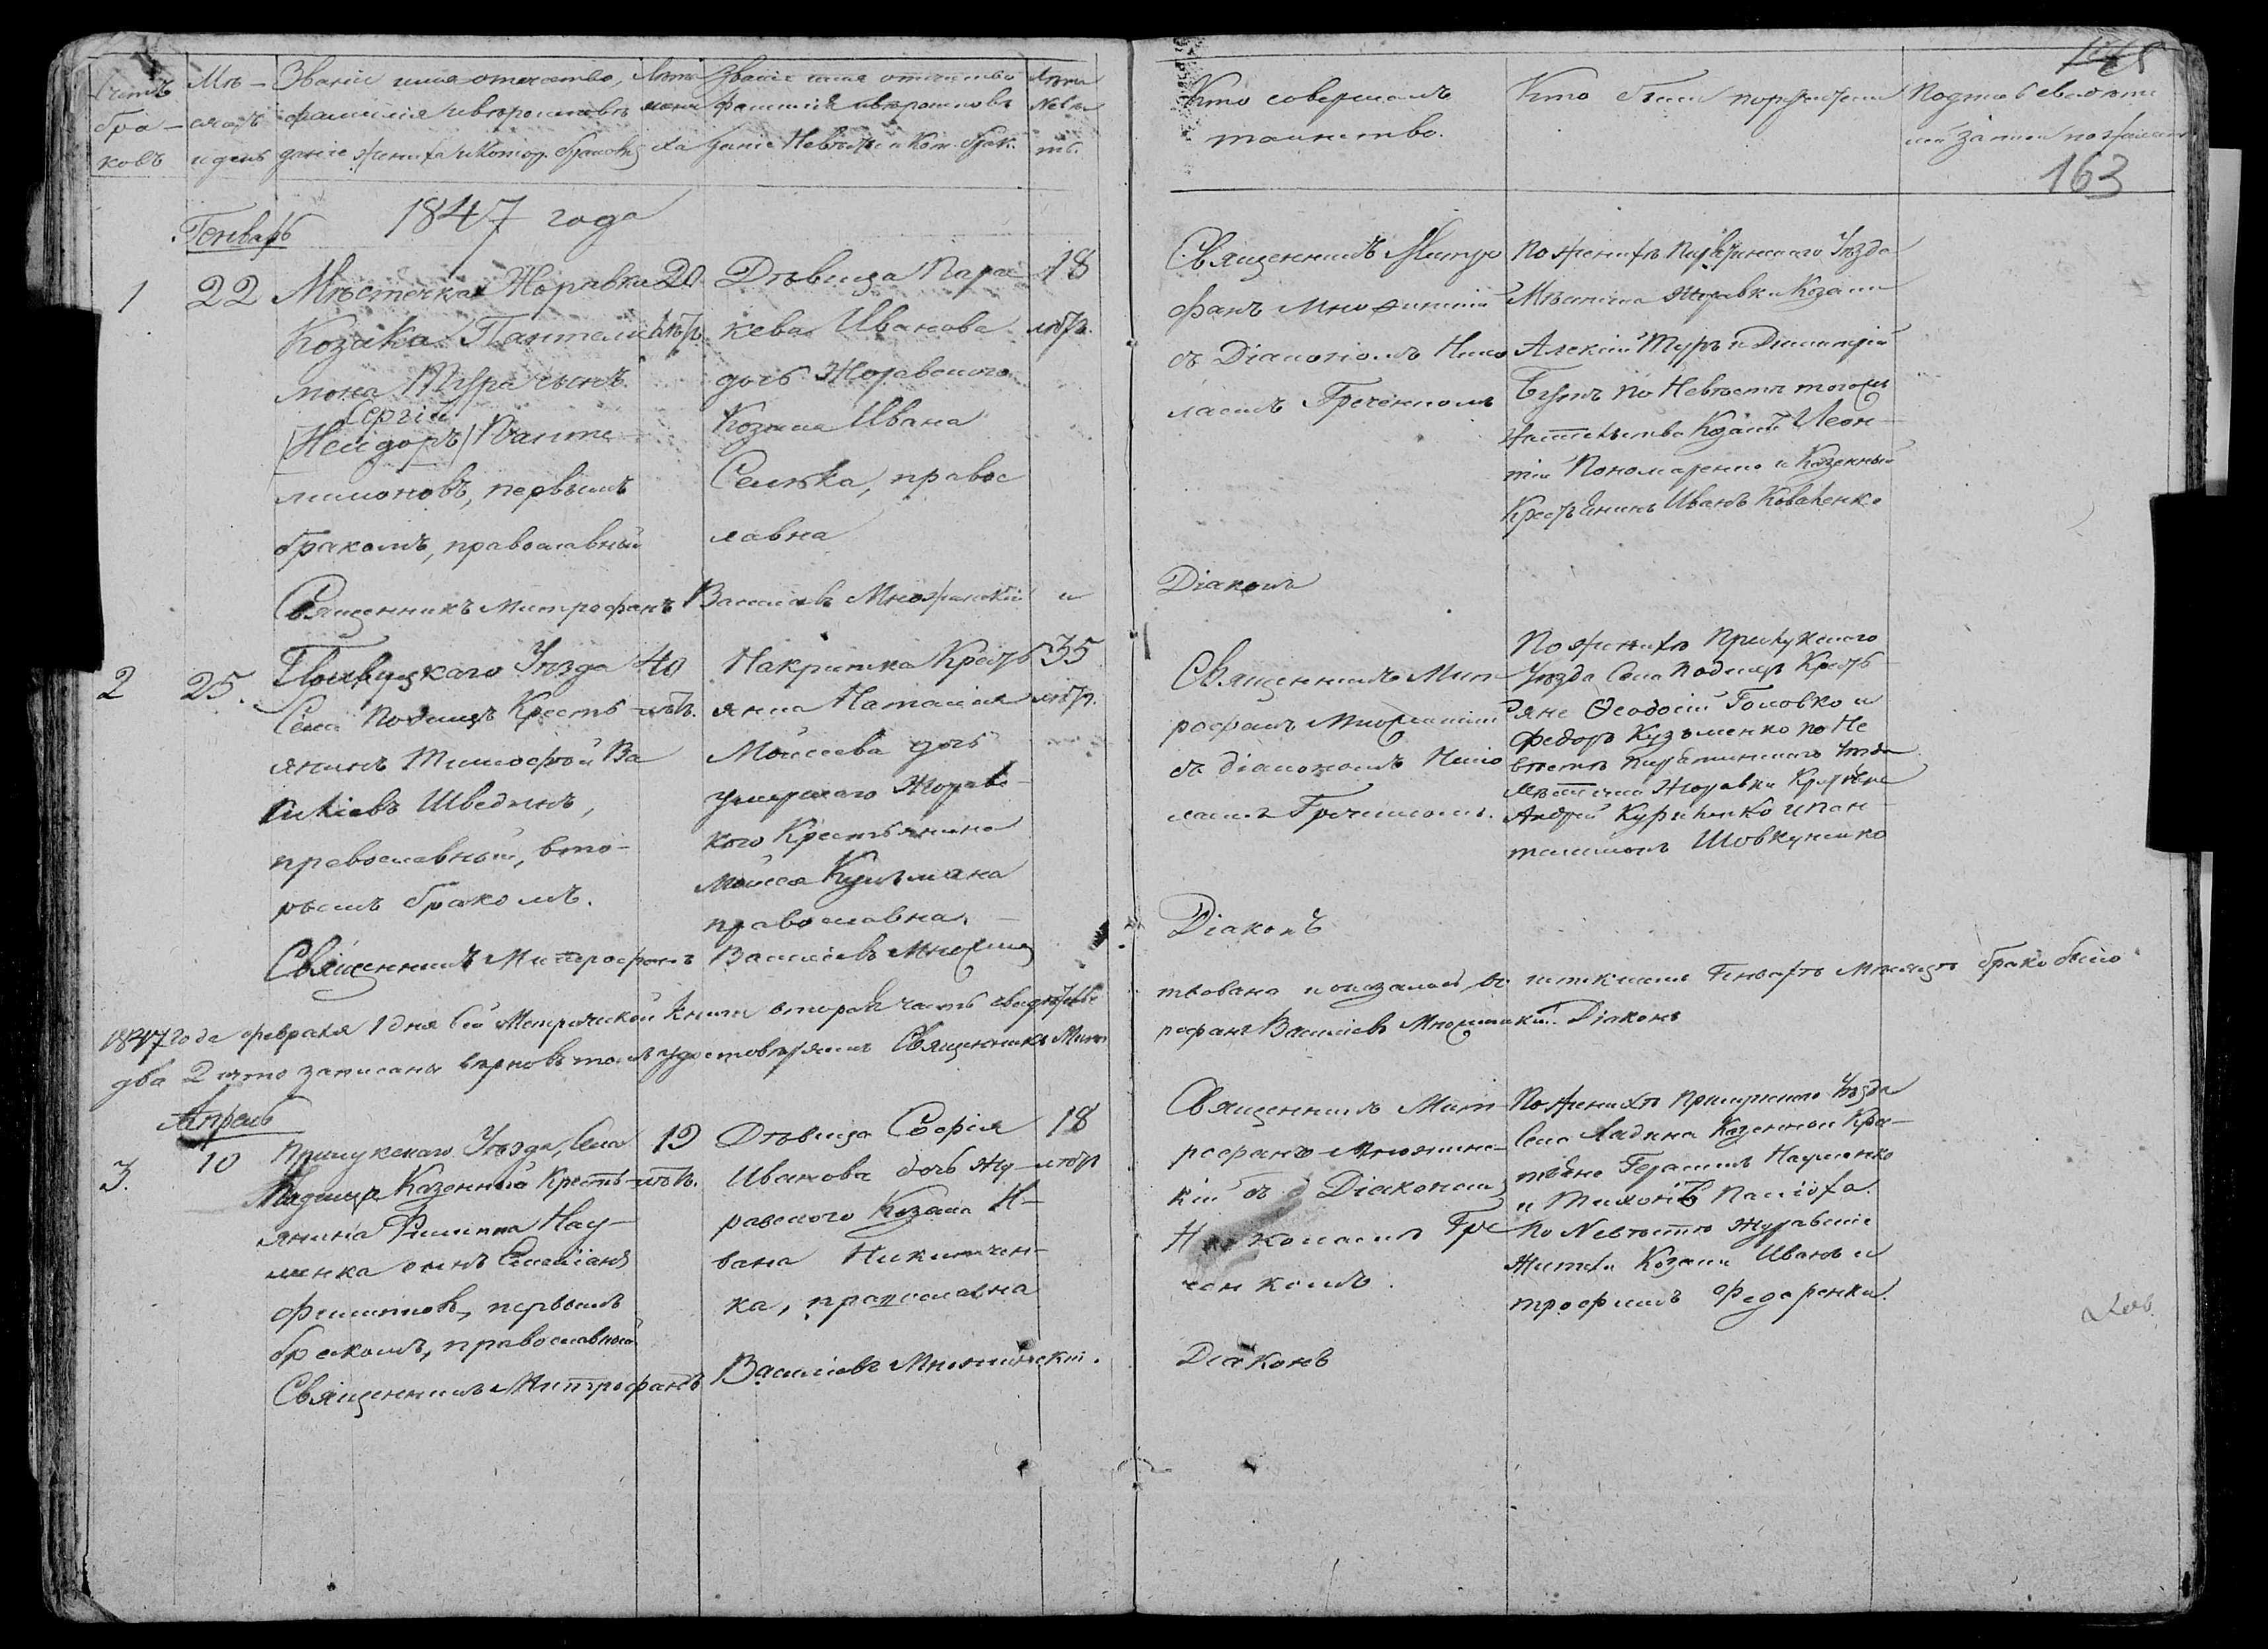 Счетъ бра-ковъ
Мѣ-сяцъ и день
Званіе имя отчество, фамилія и вѣроисповѣданіе жениха и котор. бракомъ
Лѣта жени ха
Званіе имя отчество фамилія и вѣроисповѣданіе Невѣсты и Кот. брак.
Лѣта Невѣсты
Кто совершалъ таинство.
Кто были поручители
163
Генварь
1847 года
1
22
Мѣстечка Журавки
Козака Пантели
мона Тура сынъ
Сергій
(Неидоръ) Панте
лимоновъ, первымъ
бракомъ, православный
20
лѣтъ.
Дѣвица Парас
кева Иванова
дочь Журавского
Козака Ивана
Семъка, правос
лавна
18
лѣтъ.
Священникъ Митро
фанъ Множинскій
съ Діакономъ Нико
лаемъ Греченкомъ
По женихѣ Пирятинского Уѣзда
Мѣстечка Журавки Козаки
Алексій Туръ и Димитрій
по Невѣстѣ тогожъ
жительства Козакъ Леон-
тій Пономаренко и Казенный
Крестьянинъ Иванъ Коваленко
Священникъ Митрофанъ Василіевъ Множинскій и
Діаконъ
2
25.
Прилуцкаго Уѣзда
Села Подищъ Кресть-
янинъ Тимофей Ва
силіевъ Шведунъ,
православный, вто-
рымъ бракомъ.
40
лѣтъ.
Накритка Кресть
янка Наталія
Мойсеева дочь
умершаго Журавс-
кого Крестьянина
Мойсея Кульмана
православна.
35
лѣтъ.
Священникъ Мит-
рофанъ Множинскій
съ діакономъ Нико
лаемъ Греченкомъ.
По женихѣ Прилуцкого
Уѣзда Села Подищъ Кресть-
яне Ѳеодосій Головко и
Федоръ Кузьменко по Не
вѣстѣ Пирятинского Уѣзда
Мѣстечка Журавки Крестьяне
Андрей Куриленко и Пан-
телимонъ Шовкуненко
Священникъ Митрофанъ Василіевъ Множинскій
Діаконъ
1847 Года февраля 1 дня Сей Метрической Книги вторая часть свидѣтельс-
твована и оказалось, въ истекшемъ Генварѣ Мѣсяцѣ браковъ было
два 2 и что записаны вѣрно въ томъ удостовѣряемъ Священникъ Мит
рофанъ Василіевъ Множинскій. Діаконъ
Апрель
3.
10
Прилуцкаго Уѣзда, Села
Подища Казенный Кресть-
янина Филиппа Нау-
менка сынъ Емеліанъ
Филипповъ, первымъ
бракомъ, православный
19
лѣтъ.
Дѣвица Софія
Иванова дочь Жу-
равского Козака И-
вана Никитчен-
ка, православна
18
лѣтъ
Священникъ Мит-
рофанъ Множинс-
кій съ Діакономъ
Николаемъ Гре
ченкомъ.
По женихѣ Прилуцкого Уѣзда
Села Ладина Казенный Кре-
стьяне Герасимъ Науменко
и Тихонъ Паліоха.
По Невѣстѣ Журавскіе
жители Козаки Иванъ и
Трофимъ Федоренки.
Священникъ Митрофанъ Василіевъ Множинскій.
Діаконъ